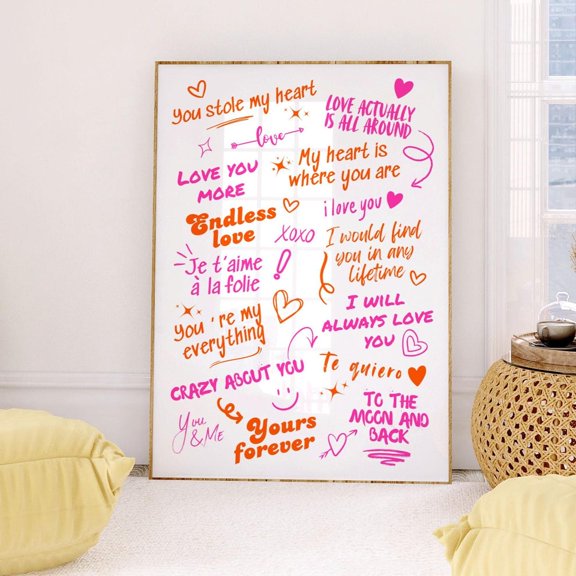 you stole my heart
LOVE ACTUALLY
IS ALL AROUND
love
LOVE YOU
MORE
My heart is
where you are
Endless
love
i love you
XOXO
I would find
you in any
lifetime
Je t'aime
à la folie
!
I WILL
ALWAYS LOVE
YOU
You're my
everything
Te quiero
CRAZY ABOUT YOU
TO THE
MOON AND
BACK
You
& Me
Yours
forever